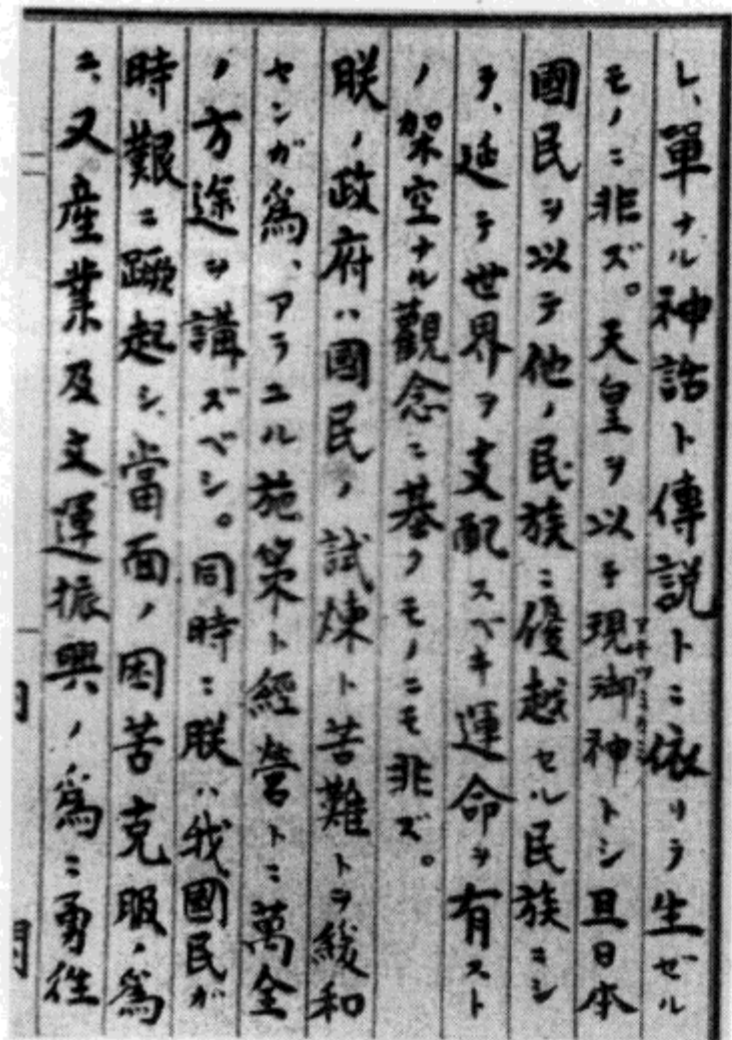 レ、單ナル神話ト傳説トニ依リテ生ゼル
モノニ非ズ。天皇ヲ以テ現御神トシ且日本
アキツミカミ
國民ヲ以テ他ノ民族ニ優越セル民族ニシ
テ、延テ世界ヲ支配スベキ運命ヲ有スト
ノ架空ナル觀念ニ基クモノニモ非ズ。
朕ノ政府ハ國民ノ試煉ト苦難トヲ緩和
センガ爲、アラユル施策ト經營トニ萬全
ノ方途ヲ講ズベシ。同時ニ朕ハ我國民ガ
時艱ニ蹶起シ、當面ノ困苦克服ノ爲
ニ、又産業及文運振興ノ爲ニ勇往